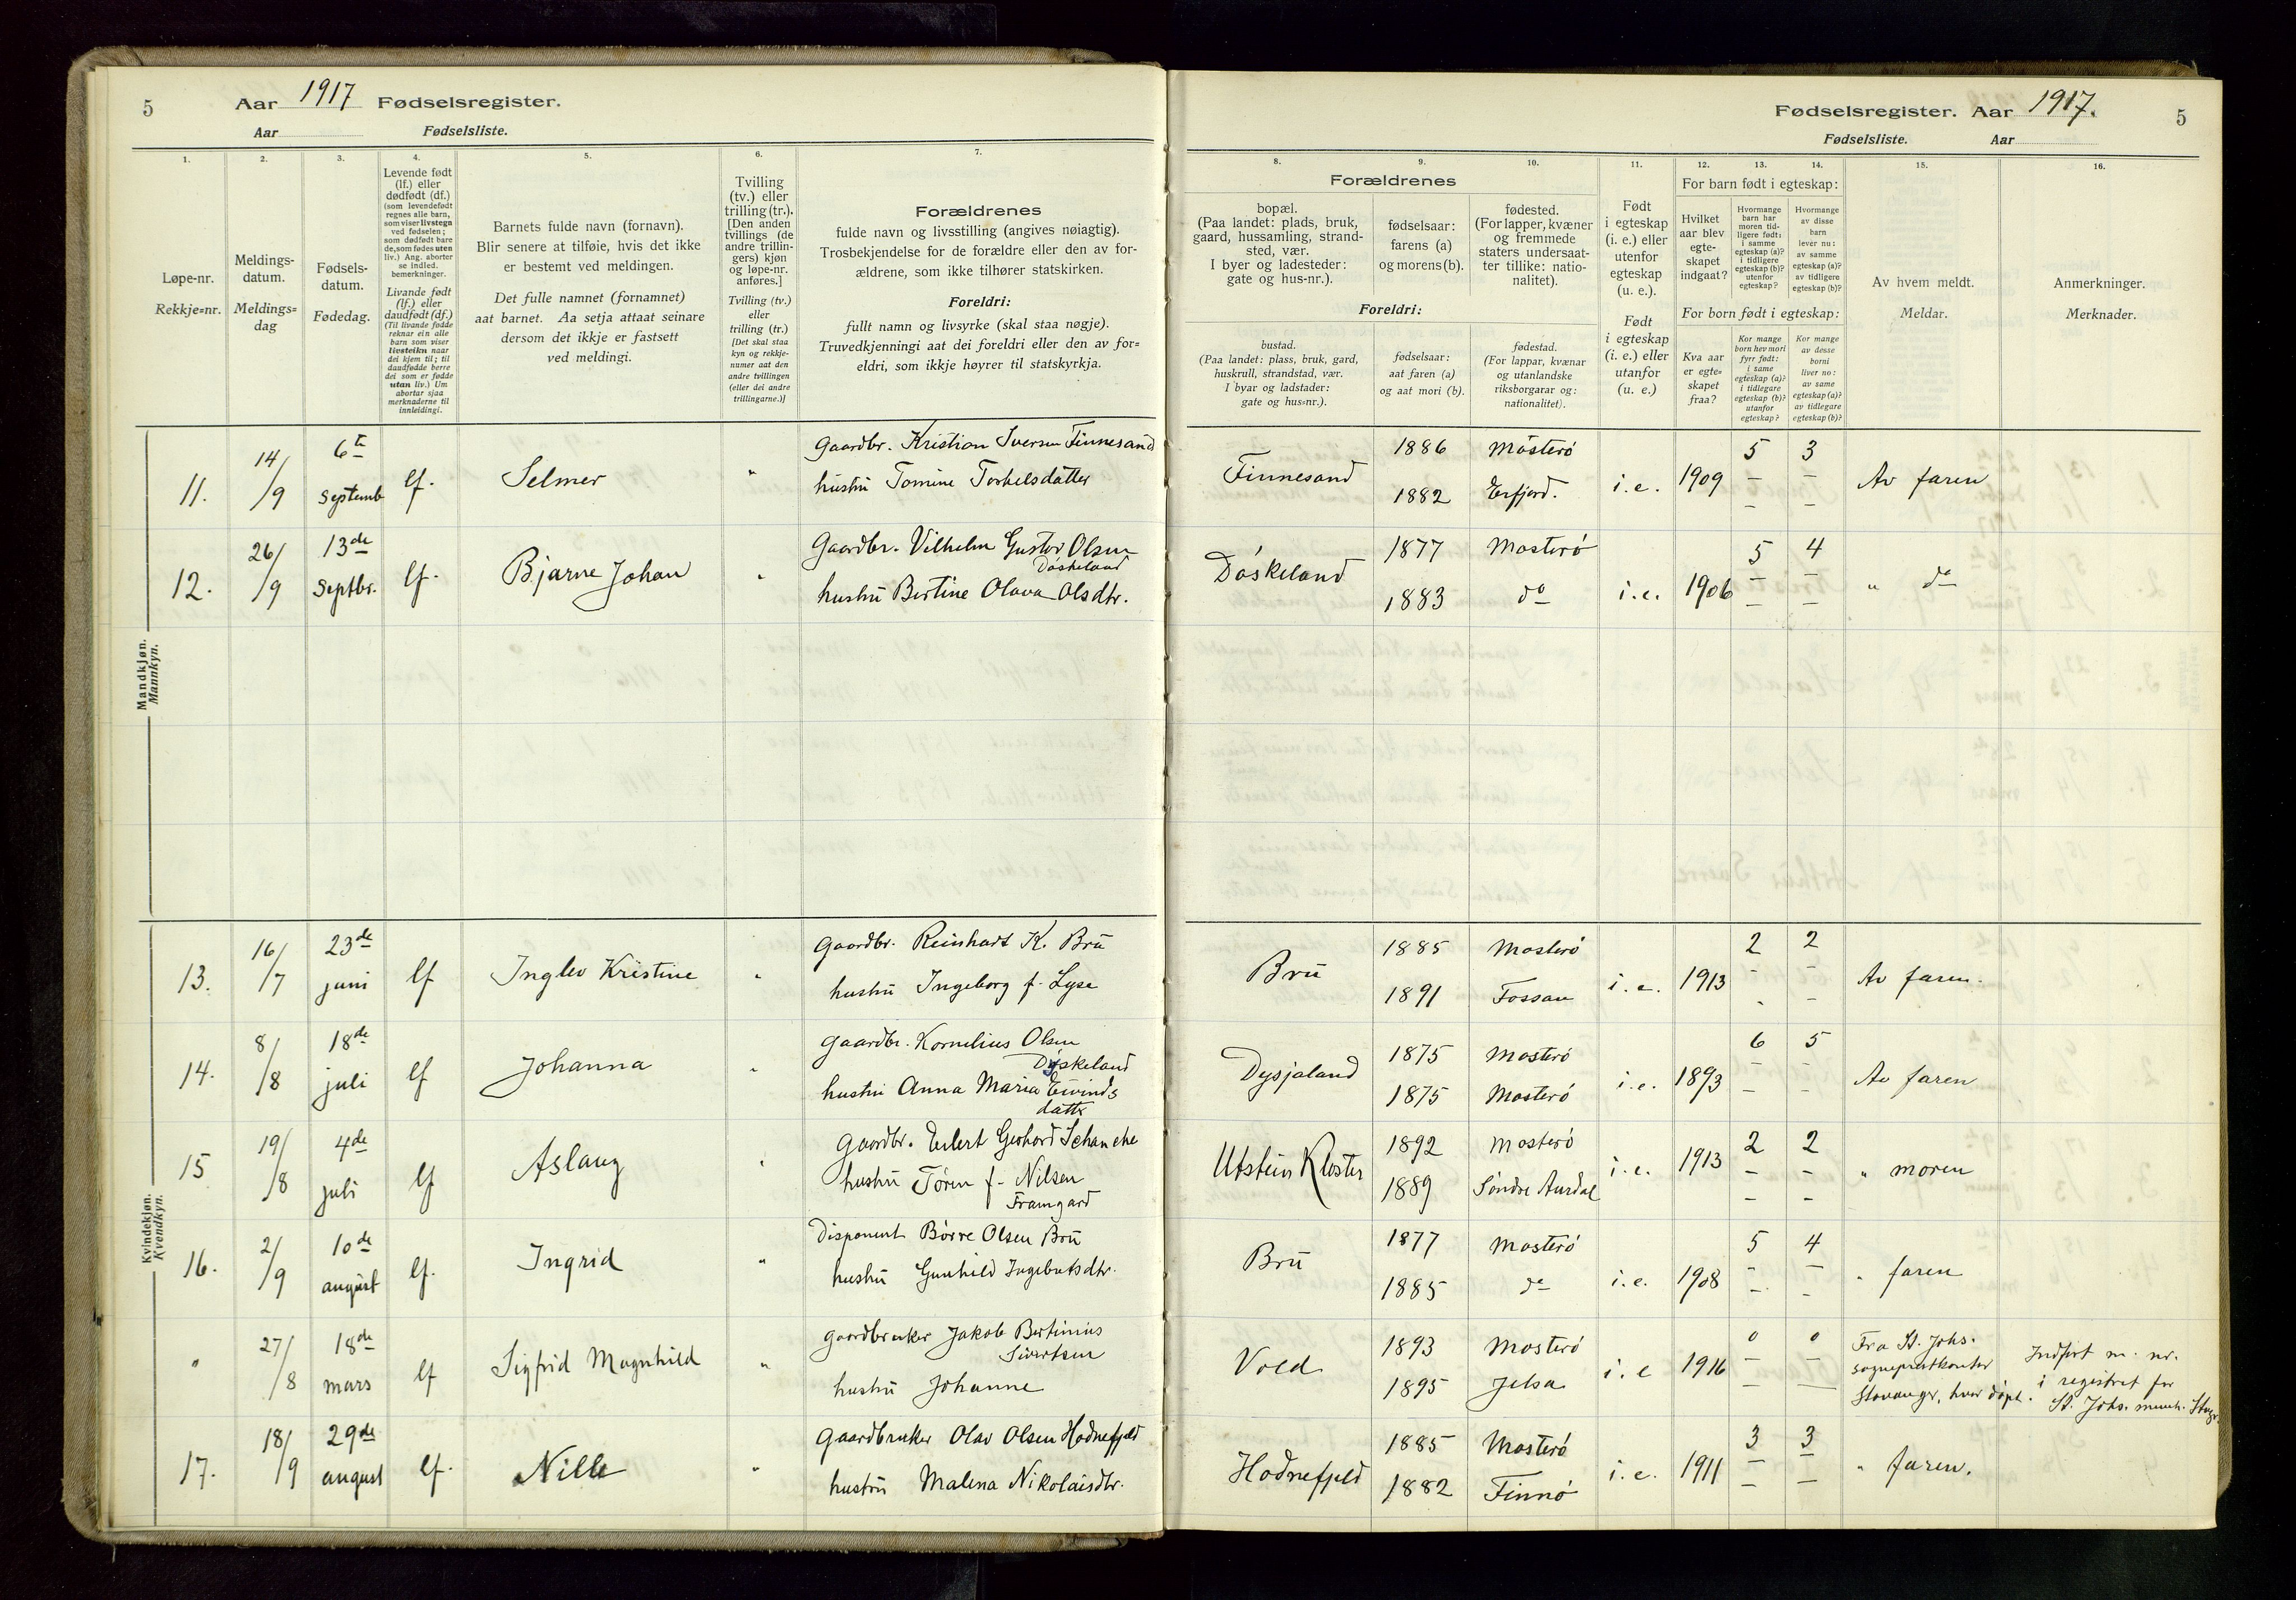 5 Aar 1917 Fødselsregister.
Aar Fødselsliste.
1. 2. 3. 4. 5. 6. 7.
Løpe-nr.
Rekkje=nr.
Meldings-
datum.
Meldings=
dag
Fødsels-
datum.
Fødedag.
Levende født
(lf.) eller
dødfødt (df.)
(som levendefødt
regnes alle barn,
som viser livstegn
ved fødselen;
som dødfødt bare
de, som fødes uten
liv.) Ang. aborter
se indled.
bemerkninger.
Livande født
(lf.) eller
daudfødt (df.)
(Til livande fødde
reknar ein alle
barn som viser
livsteikn naar
dei kjem til; til
daudfødde berre
dei som er fødde
utan liv.) Um
abortar sjaa
merknaderne til
innleidingi.
Barnets fulde navn (fornavn).
Blir senere at tilføie, hvis det ikke
er bestemt ved meldingen.
Det fulle namnet (fornamnet)
aat barnet. Aa setja attaat seinare
dersom det ikkje er fastsett
ved meldingi.
Tvilling
(tv.) eller
trilling (tr.).
[Den anden
tvillings (de
andre trillin-
gers) kjøn
og løpe-nr.
anføres.]
Tvilling (tv.)
eller
trilling (tr.)
[Det skal staa
kyn og rekkje-
numer aat den
andre tvillingen
(eller dei andre
trillingarne.)]
Forældrenes
fulde navn og livsstilling (angives nøiagtig).
Trosbekjendelse for de forældre eller den av for-
ældrene, som ikke tilhører statskirken.
Foreldri:
fullt namn og livsyrke (skal staa nøgje).
Truvedkjenningi aat dei foreldri eller den av for=
eldri, som ikkje høyrer til statskyrkja.
Mandkjøn.
Mannkyn.
11. 14/9 6te Septemb lf. Selmer " Gaardbr. Kristian Iversen Finnesand
hustru Tomine Torkelsdatter
12. 26/9 13de Septbr. lf. Bjarne Johan " Gaardbr. Vilhelm Gustav Olsen
Døskeland
hustru Bertine Olava Olsdtr.
Kvindekjøn.
Kvendkyn.
13. 16/7 23de juni lf Inglev Kristine " Gaardbr. Reinhart K. Bru
hustru Ingeborg f. Lyse
14. 8/8 18de juli lf Johanna " Gaardbr. Kornelius Olsen
Dyskeland
hustru Anna Maria Eivinds
dattr
15 19/8 4de juli lf Aslaug " Gaardbr. Eilert Gerhard Schanche
hustru Tøren f. Nilsen
Framgard
16. 2/9 10de august lf. Ingrid " Disponent Børre Olsen Bru
hustru Gunhild Ingebretsdtr.
" 27/8 18de mars lf Sigfrid Magnhild " Gaardbruker Jakob Bertinius
Sivertsen
hustru Johanne
17. 18/9 29de august lf. Nille " Gaardbruker Olav Olsen Hodnefjeld
hustru Malena Nikolaisdtr.
Fødselsregister. Aar 1917. 5
Fødselsliste. Aar
8. 9. 10. 11. 12. 13. 14. 15. 16.
Forældrenes
bopæl.
(Paa landet: plads, bruk,
gaard, hussamling, strand-
sted, vær.
I byer og ladesteder:
gate og hus-nr.).
fødselsaar:
farens (a)
og morens (b).
fødested.
(For lapper, kvæner
og fremmede
staters undersaat-
ter tillike: natio-
nalitet).
Foreldri:
bustad.
(Paa landet: plass, bruk, gard,
huskrull, strandstad, vær.
I byar og ladstader:
gate og hus=nr.).
fødselsaar:
aat faren (a)
og aat mori (b).
fødestad.
(For lappar, kvænar
og utanlandske
riksborgarar og:
nationalitet).
Født
i egteskap
(i. e.) eller
utenfor
egteskap
(u. e.).
Født
i egteskap
(i. e.) eller
utanfor
(u. e.)
For barn født i egteskap:
Hvilket
aar blev
egte-
skapet
indgaat?
Hvormange
barn har
moren tid-
ligere født:
i samme
egteskap (a)?
i tidligere
egteskap (b)?
utenfor
egteskap?
Hvormange
av disse
barn
lever nu:
av samme
egteskap (a)?
av tidligere
egteskap (b)?
For born født i egteskap:
Kva aar
er egte=
skapet
fraa?
Kor mange
born hev mori
fyrr født:
i same
egteskap (a)?
i tidlegare
egteskap (b)?
utanfor
egteskap?
Kor mange
av desse
borni
liver no:
av same
egteskap (a)?
av tidlegare
egteskap (b)?
Av hvem meldt.
Meldar.
Anmerkninger.
Merknader.
Finnesand 1886 Mosterö i. e. 1909 5 3 Av faren
1882 Erfjord. – –
– –
Døskeland 1877 Mosterö i. e. 1906 5 4 " do
1883 do – –
– –
Bru 1885 Mosterö i. e. 1913 2 2 Av faren.
1891 Fossan – –
Dysjaland 1875 Mosterö i. e. 1893 6 5 Av faren
1875 Mosterö – –
Utstein Kloster 1892 Mosterö i. e. 1913 2 2 " moren
1889 Søndre Aurdal – –
– –
Bru 1877 Mosterö i. e. 1908 5 4 " faren
1885 do – –
– –
Vold 1893 Mosterö i. e 1916 0 0 Fra St. Johs.
sogneprestkontor
Stavanger, hvor døpt.
1895 Jelsa – –
Indført m. nr.
i registret for
St. Johs. menh. Stvgr.
Hodnefjeld 1885 Mosterö i. e. 1911 3 3 " faren.
1882 Finnö – –
– –